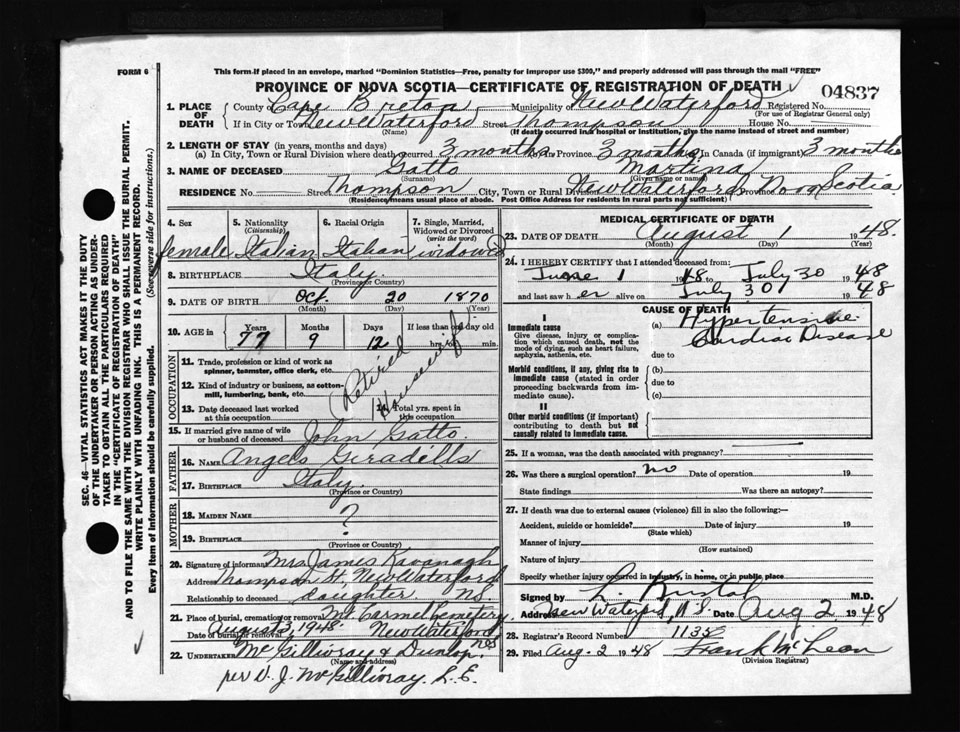 FORM 6
This form if placed in an envelope, marked "Dominion Statistics—Free, penalty for improper use $300," and properly addressed will pass through the mail "FREE"
PROVINCE OF NOVA SCOTIA—CERTIFICATE OF REGISTRATION OF DEATH
04837
1. PLACE OF DEATH
County of Cape Breton Municipality of New Waterford Registered No.
(For use of Registrar General only)
If in City or Town New Waterford Street Thompson House No.
(Name) (If death occurred in a hospital or institution, give the name instead of street and number)
2. LENGTH OF STAY (in years, months and days)
(a) In City, Town or Rural Division where death occurred 3 months In Province 3 months In Canada (if immigrant) 3 months
3. NAME OF DECEASED Gatto Martina
(Surname) (Given name or names)
RESIDENCE No. Street Thompson City, Town or Rural Division New Waterford Province Nova Scotia
(Residence means usual place of abode. Post Office Address for residents in rural parts not sufficient)
4. Sex
5. Nationality (Citizenship)
6. Racial Origin
7. Single, Married, Widowed or Divorced (write the word)
female Italian Italian widowed
8. BIRTHPLACE Italy.
(Province or Country)
9. DATE OF BIRTH Oct. 20 1870
(Month) (Day) (Year)
10. AGE in Years Months Days If less than one day old
77 9 12 hrs. or min.
OCCUPATION
11. Trade, profession or kind of work as spinner, teamster, office clerk, etc.
12. Kind of industry or business, as cotton-mill, lumbering, bank, etc.
13. Date deceased last worked at this occupation
14. Total yrs. spent in this occupation
Retired Housewife
15. If married give name of wife or husband of deceased John Gatto.
FATHER
16. NAME Angelo
17. BIRTHPLACE Italy.
(Province or Country)
MOTHER
18. MAIDEN NAME ?
19. BIRTHPLACE
(Province or Country)
20. Signature of informant Mrs. James Kavanagh
Address Thompson St, New Waterford
Relationship to deceased daughter N.S.
21. Place of burial, cremation or removal Mt. Carmel Cemetery,
Date of burial or removal August 3, 1948 New Waterford
N.S.
22. UNDERTAKER McGillivray & Dunlop.
(Name and address)
per D. J. McGillivray. L.E.
MEDICAL CERTIFICATE OF DEATH
23. DATE OF DEATH August 1 1948.
(Month) (Day) (Year)
24. I HEREBY CERTIFY that I attended deceased from:
June 1 1948 to July 30 1948
and last saw her alive on July 30 1948
CAUSE OF DEATH
I
Immediate cause
Give disease, injury or complication which caused death, not the mode of dying, such as heart failure, asphyxia, asthenia, etc.
(a) Hypertensive
Cardiac Disease
due to
Morbid conditions, if any, giving rise to immediate cause (stated in order proceeding backwards from immediate cause).
(b)
due to
(c)
II
Other morbid conditions (if important) contributing to death but not causally related to immediate cause.
25. If a woman, was the death associated with pregnancy?
26. Was there a surgical operation? no Date of operation 19
State findings Was there an autopsy?
27. If death was due to external causes (violence) fill in also the following:—
Accident, suicide or homicide? Date of injury 19
(State which)
Manner of injury
(How sustained)
Nature of injury
Specify whether injury occurred in industry, in home, or in public place
Signed by L. M.D.
Address New Waterford, N.S. Date Aug 2 1948
28. Registrar's Record Number 1135
29. Filed Aug. 2 1948 Frank McLean
(Division Registrar)
SEC. 46—VITAL STATISTICS ACT MAKES IT THE DUTY
OF THE UNDERTAKER OR PERSON ACTING AS UNDER-
TAKER TO OBTAIN ALL THE PARTICULARS REQUIRED
IN THE "CERTIFICATE OF REGISTRATION OF DEATH"
AND TO FILE THE SAME WITH THE DIVISION REGISTRAR WHO SHALL ISSUE THE BURIAL PERMIT.
WRITE PLAINLY WITH UNFADING INK. THIS IS A PERMANENT RECORD.
Every item of information should be carefully supplied. (See reverse side for instructions.)